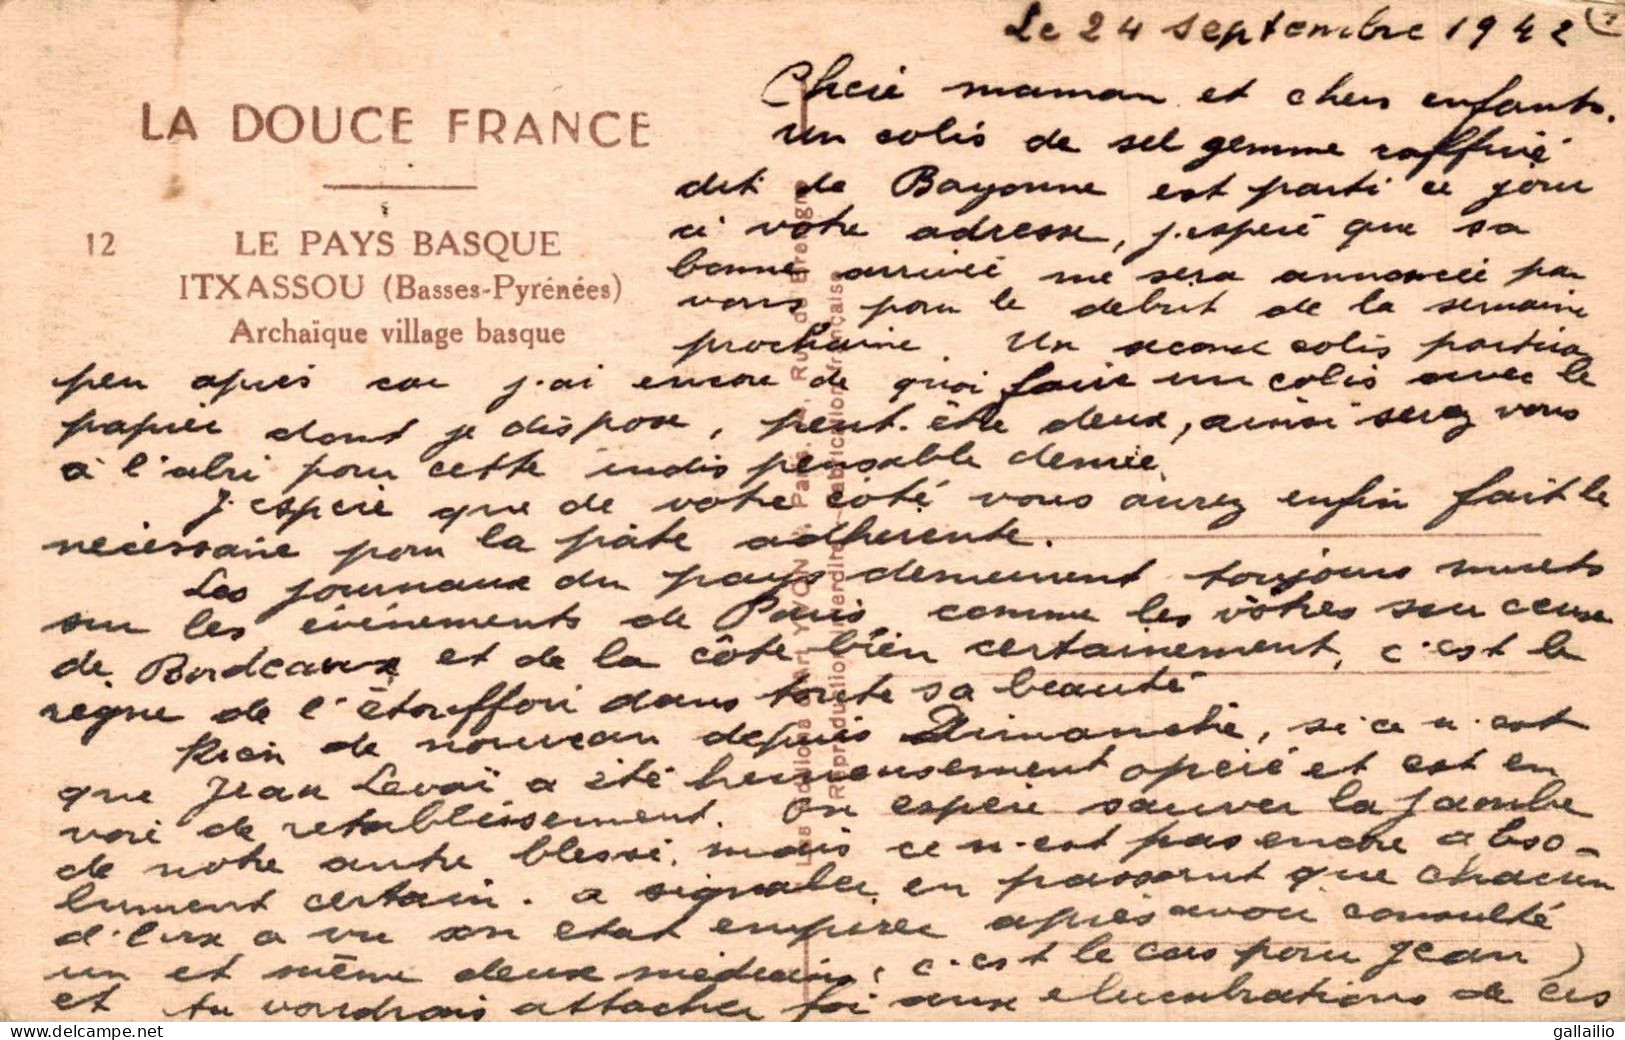 Le 24 septembre 1942
LA DOUCE FRANCE
12 LE PAYS BASQUE
ITXASSOU (Basses-Pyrénées)
Archaïque village basque
Cherie maman et chers enfants.
Un colis de sel gemme raffiné
dit de Bayonne est parti ce jour
à votre adresse, j'espère que sa
bonne arrivée me sera annoncée par
vous pour le debut de la semaine
prochaine. Un second colis partira
peu après car j'ai encore de quoi faire un colis avec le
papier dont je dispose, peut-être deux, ainsi serez vous
à l'abri pour cette indispensable denrée.
J'espère que de votre côté vous aurez enfin fait le
nécessaire pour la pâte adherente.
Les journaux du pays demeurent toujours muets
sur les événements de Paris, comme les vôtres sur ceux
de Bordeaux et de la côte bien certainement, c'est le
règne de l'étouffoir dans toute sa beauté
Rien de nouveau depuis Dimanche, si ce n'est
que Jean Levaï a été heureusement opéré et est en
voie de retablissement. On espère sauver la jambe
de notre autre blessé, mais ce n'est pas encore abso-
lument certain. a signaler en passant que chacun
d'eux a vu son etat empirer après avoir consulté
un et même deux médecins, c'est le cas pour Jean)
et tu voudrais attacher foi aux elucubrations de ces
Les Editions d'Art YVON, Paris. Rue de Bretagne
Reproduction interdite Fabrication française
delcampe.net
gallailio